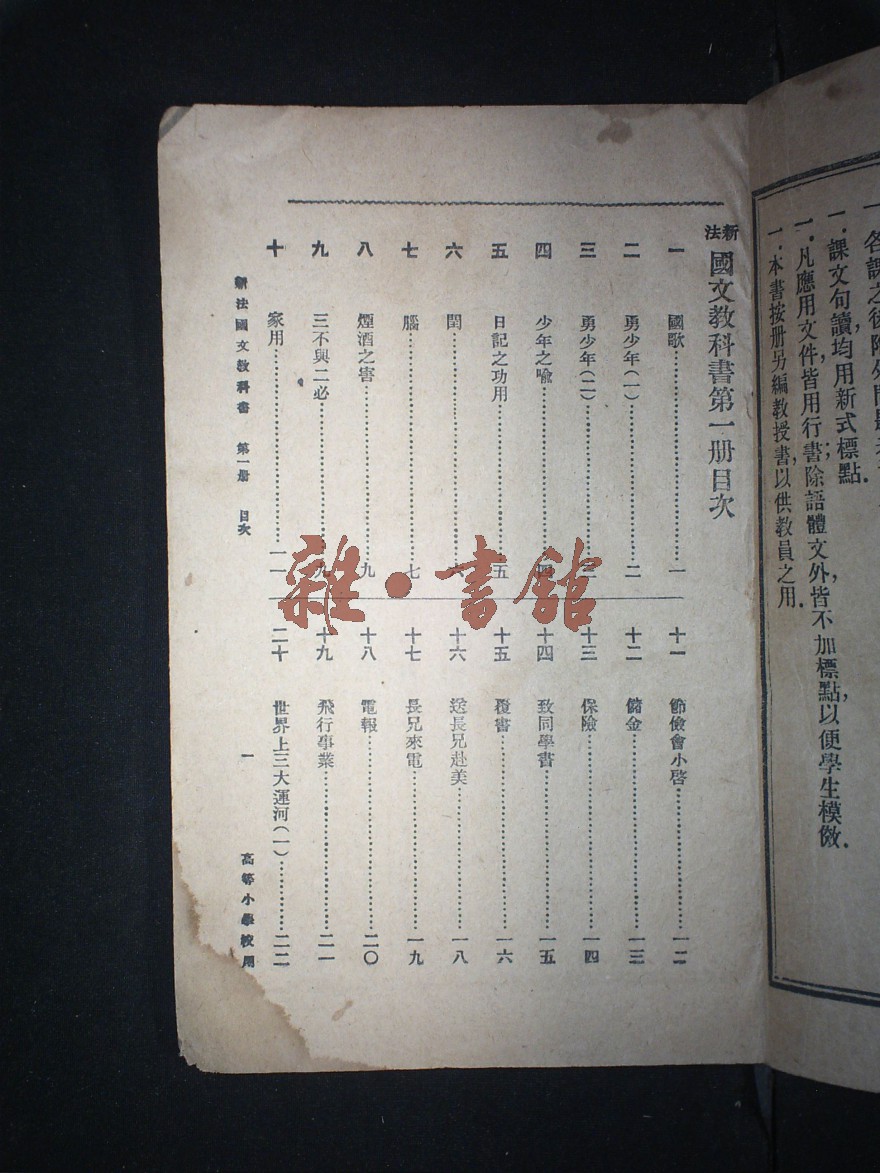 一．各課之後附
一．課文句讀，均用新式標點．
一．凡應用文件，皆用行書；除語體文外，皆不加標點，以便學生模倣．
一．本書按册另編教授書，以供教員之用．
新法 國文教科書第一册目次
一 國歌……………………一
二 勇少年(一)……………………二
三 勇少年(二)……………………三
四 少年之喩……………………四
五 日記之功用……………………五
六 閏……………………六
七 腦……………………七
八 煙酒之害……………………九
九 三不與二必……………………九
十 家用……………………一一
十一 節儉會小啓……………………一二
十二 儲金……………………一三
十三 保險……………………一四
十四 致同學書……………………一五
十五 覆書……………………一六
十六 送長兄赴美……………………一八
十七 長兄來電……………………一九
十八 電報……………………二〇
十九 飛行事業……………………二一
二十 世界上三大運河(一)…………二二
新法國文教科書 第一册 目次 一 高等小學校用
雜·書館